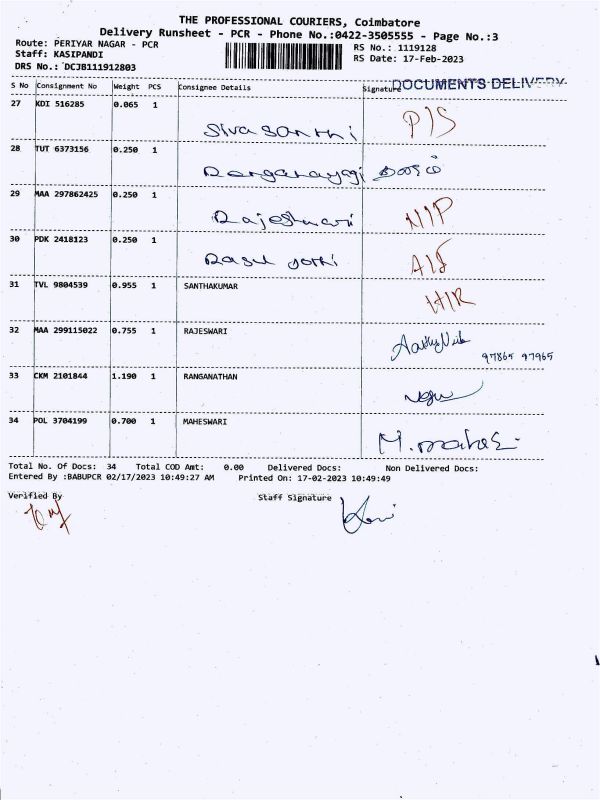 THE PROFESSIONAL COURIERS, Coimbatore
Delivery Runsheet - PCR - Phone No.:0422-3505555 - Page No.:3
Route: PERIYAR NAGAR - PCR
Staff: KASIPANDI
DRS No.: DCJB111912803
RS No.: 1119128
RS Date: 17-Feb-2023
S No Consignment No Weight PCS Consignee Details Signature DOCUMENTS DELIVERY
27 KDI 516285 0.065 1 Sivasanthi P/S
28 TUT 6373156 0.250 1 Renganayagi
29 MAA 297862425 0.250 1 Rajeshwari N/P
30 PDK 2418123 0.250 1
31 TVL 9804539 0.955 1 SANTHAKUMAR H/R
32 MAA 299115022 0.755 1 RAJESWARI 97865 97965
33 CKM 2101844 1.190 1 RANGANATHAN
34 POL 3704199 0.700 1 MAHESWARI
Total No. Of Docs: 34 Total COD Amt: 0.00 Delivered Docs: Non Delivered Docs:
Entered By :BABUPCR 02/17/2023 10:49:27 AM Printed On: 17-02-2023 10:49:49
Verified By
Staff Signature